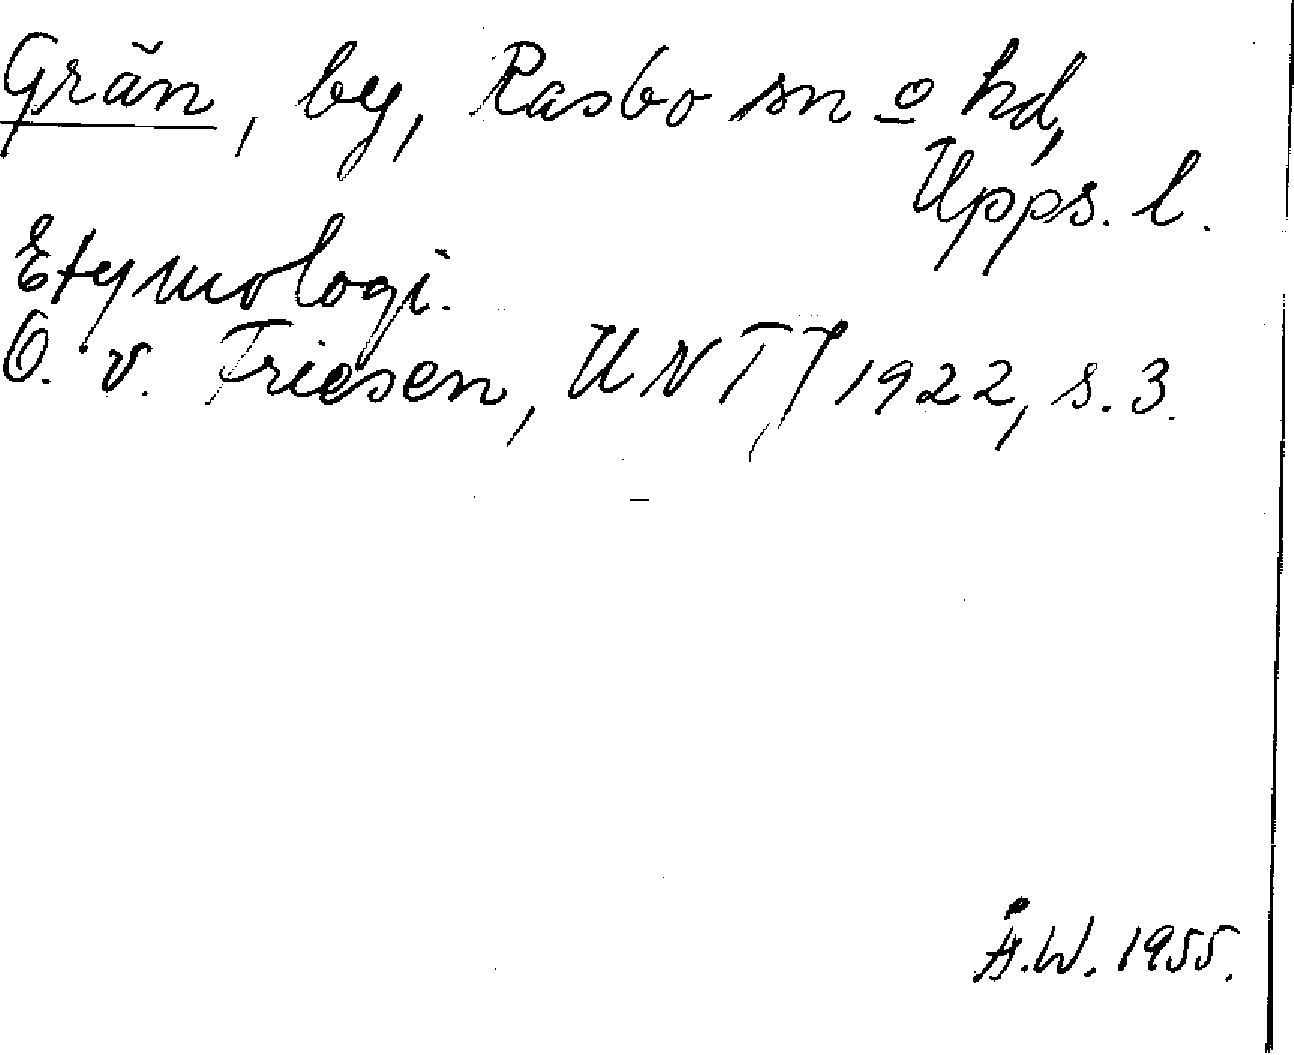 Grän, by, Rasbo sn o hd,
Upps. l.
Etymologi.
O. v. Friesen, UNT 1/7 1922, s. 3.
Å.W. 1955.